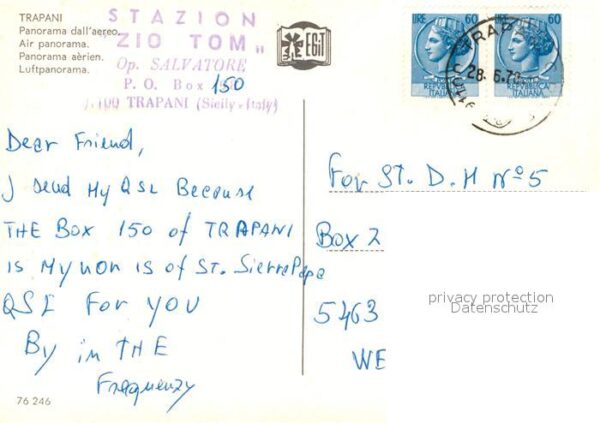 TRAPANI
Panorama dall'aereo.
Air panorama.
Panorama aèrien.
Luftpanorama.
STAZION
ZIO TOM „
Op. SALVATORE
P. O. Box 150
TRAPANI (Sicily - Italy)
EGIT
LIRE 60
REPVBBLICA
ITALIANA
60
REPVBBLICA
ITALIANA
TRAPA
28.6.
Dear Friend,
I send My QSL Because
THE Box 150 of TRAPANI
is My non is of St. Sierra Papa
QSL FOR YOU
By in THE
Frequenzy
For ST. D.H Nº5
Box 2
5463
WE
privacy protection
Datenschutz
76 246